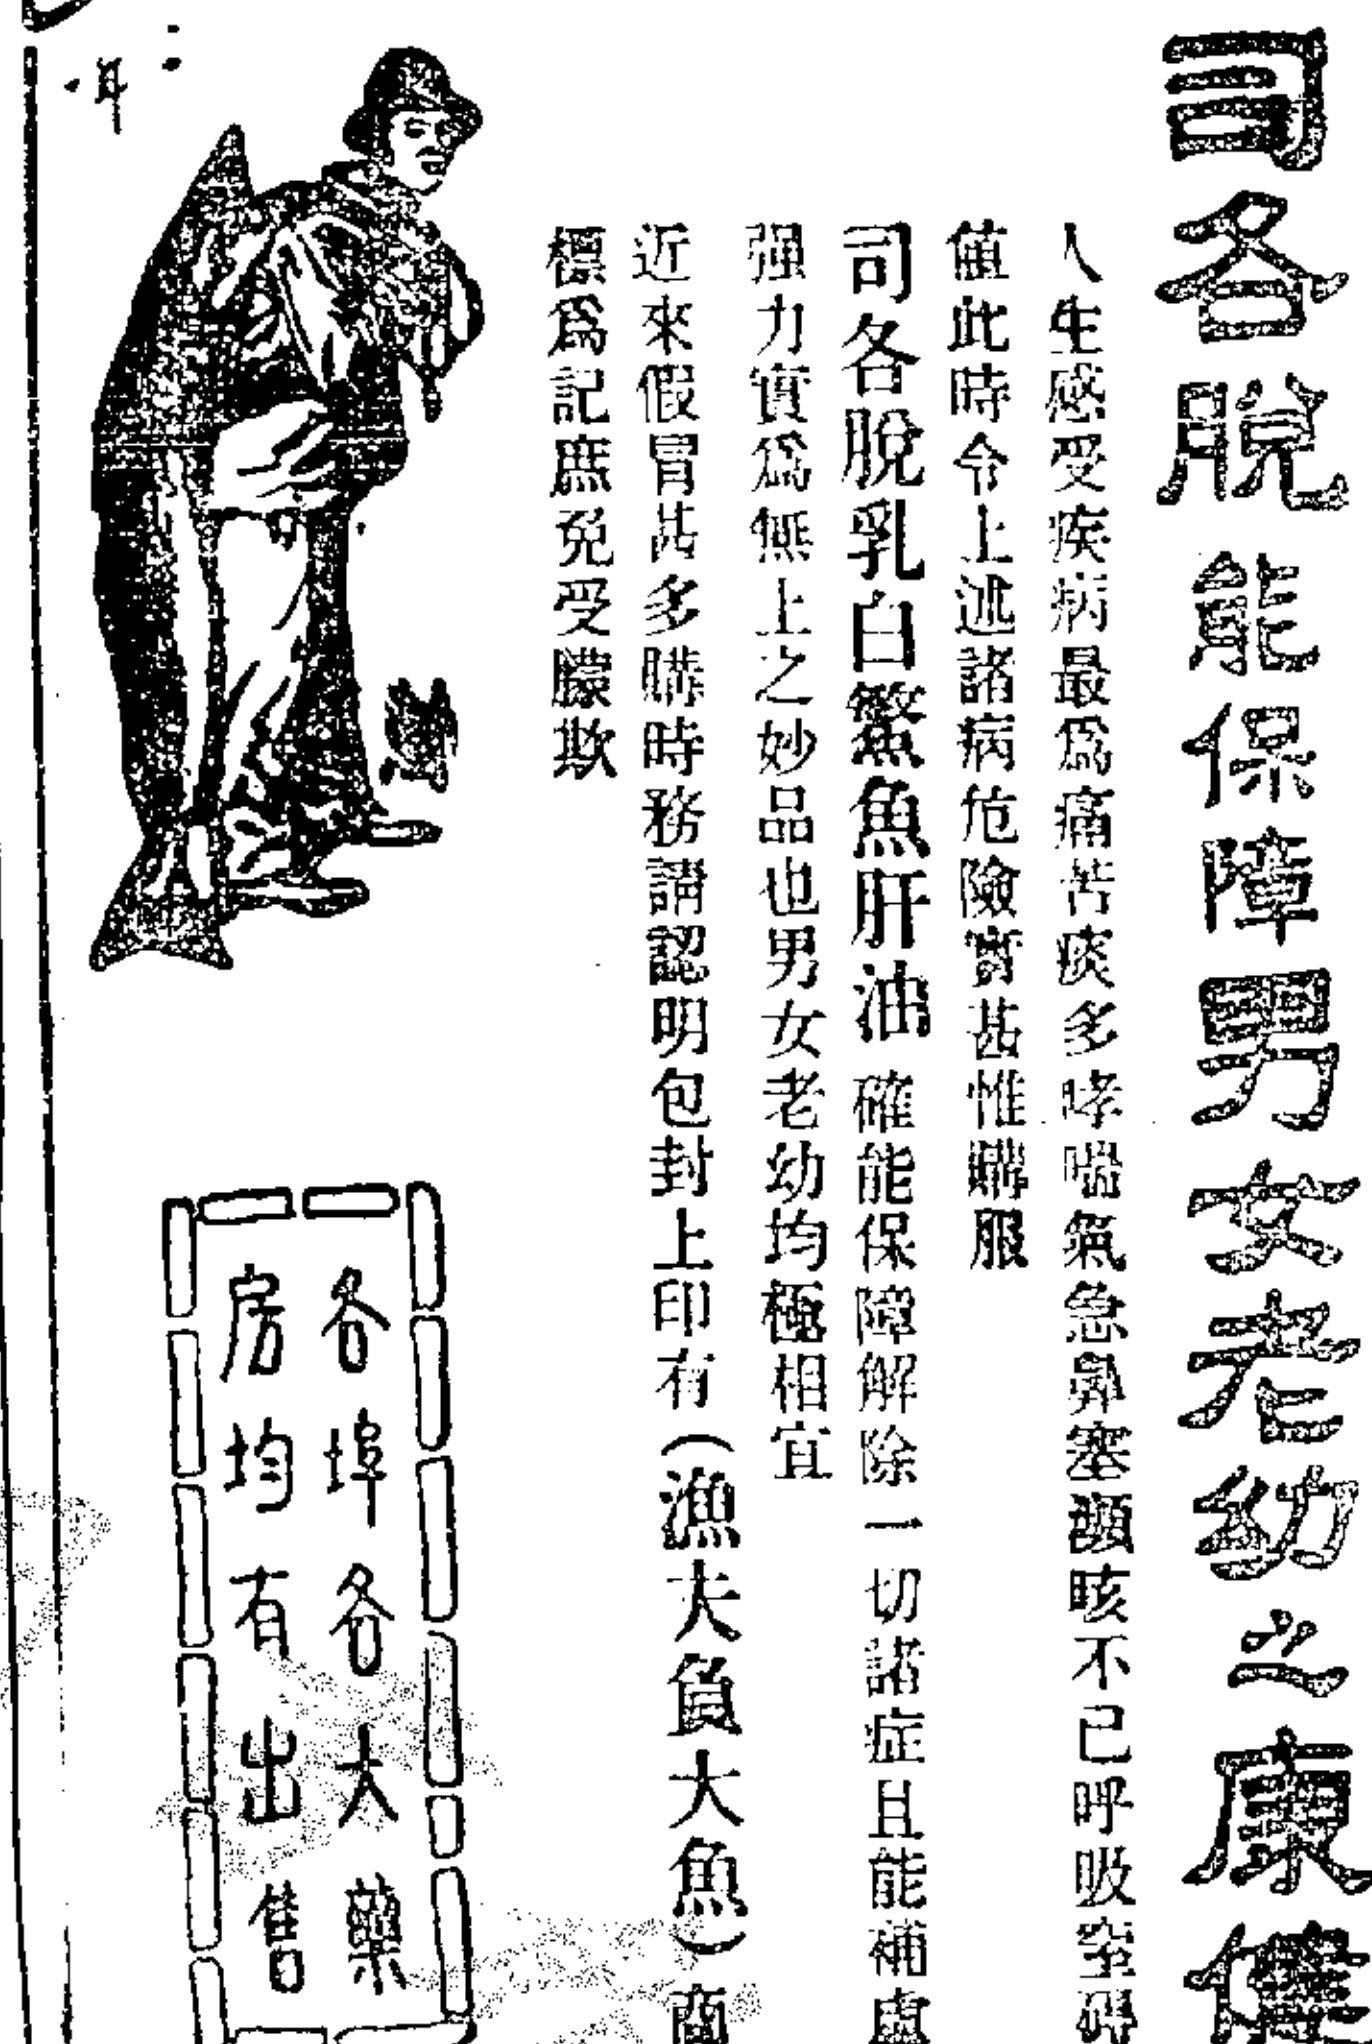 司各脫能保障男女老幼之康健
人生感受疾病最爲痛苦痰多哮喘氣急鼻塞頭咳不已呼吸窒碍
值此時令上述諸病危險實甚惟購服
司各脫乳白鰵魚肝油確能保障解除一切諸症且能補虛
强力實爲無上之妙品也男女老幼均極相宜
近來假冒甚多購時務請認明包封上印有（漁夫負大魚）商
標爲記庶免受朦欺
各埠各大藥
房均有出售